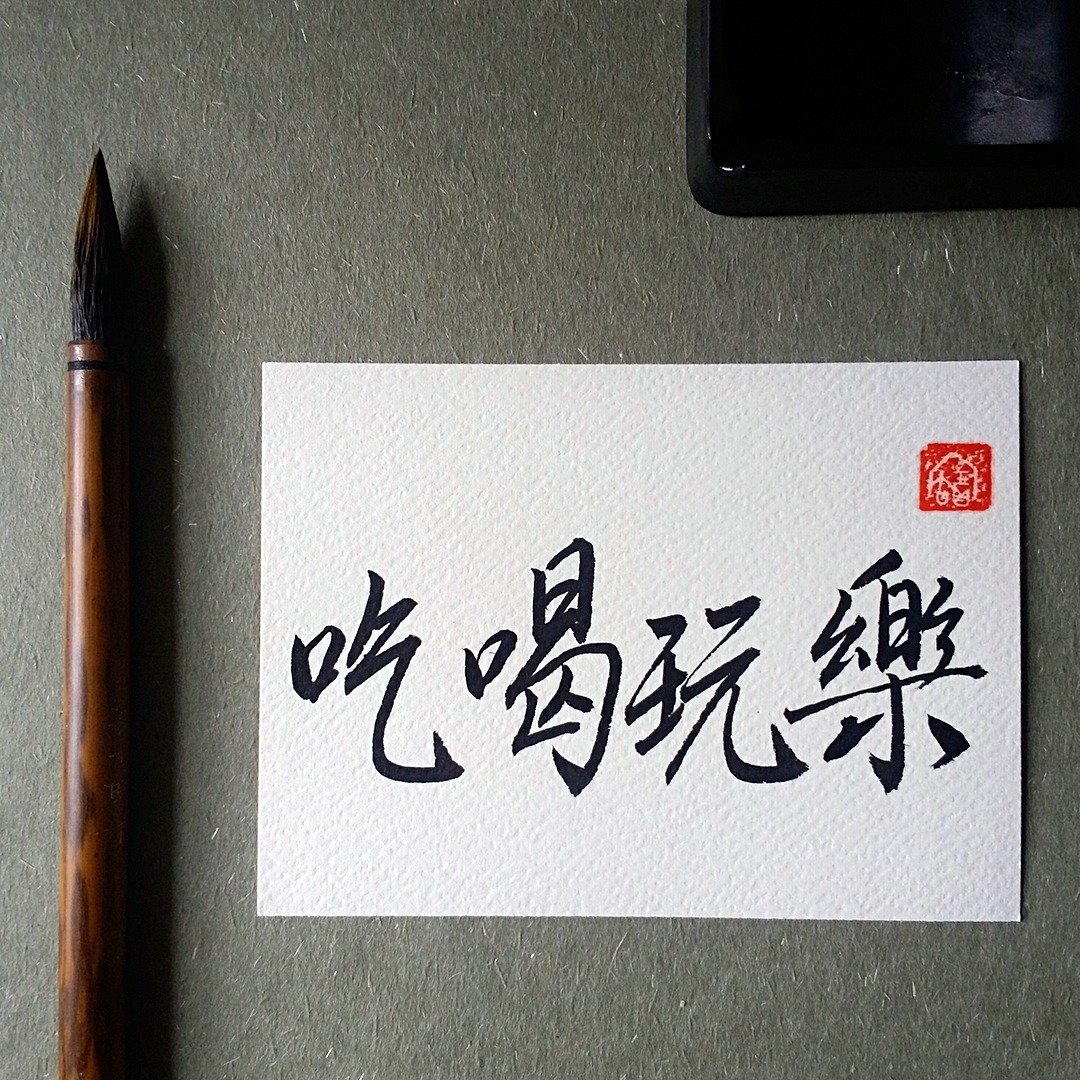 吃喝玩樂